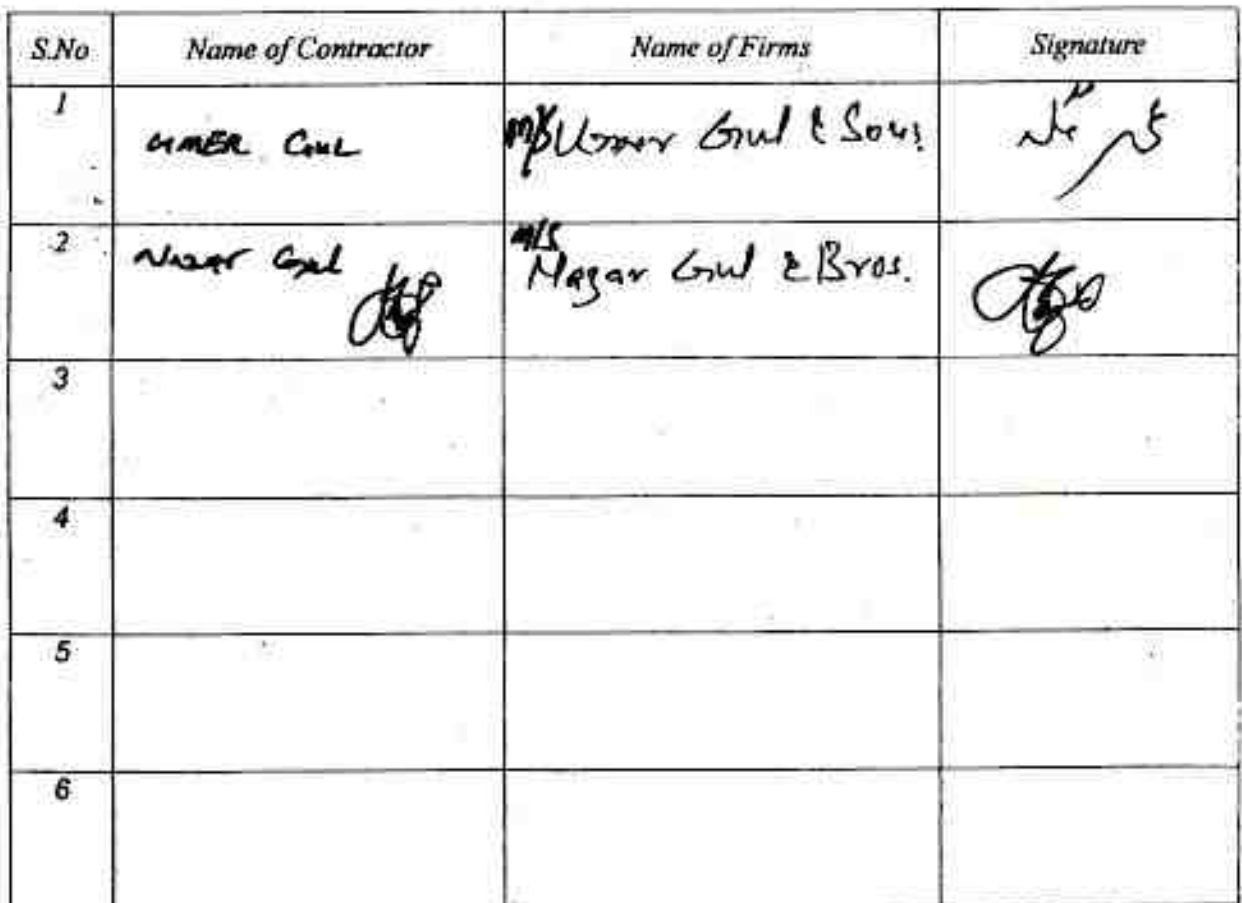 S.No Name of Contractor Name of Firms Signature
1 UMER GUL M/S Umar Gul & Sons.
2 Nazar Gul M/S Nazar Gul & Bros.
3
4
5
6